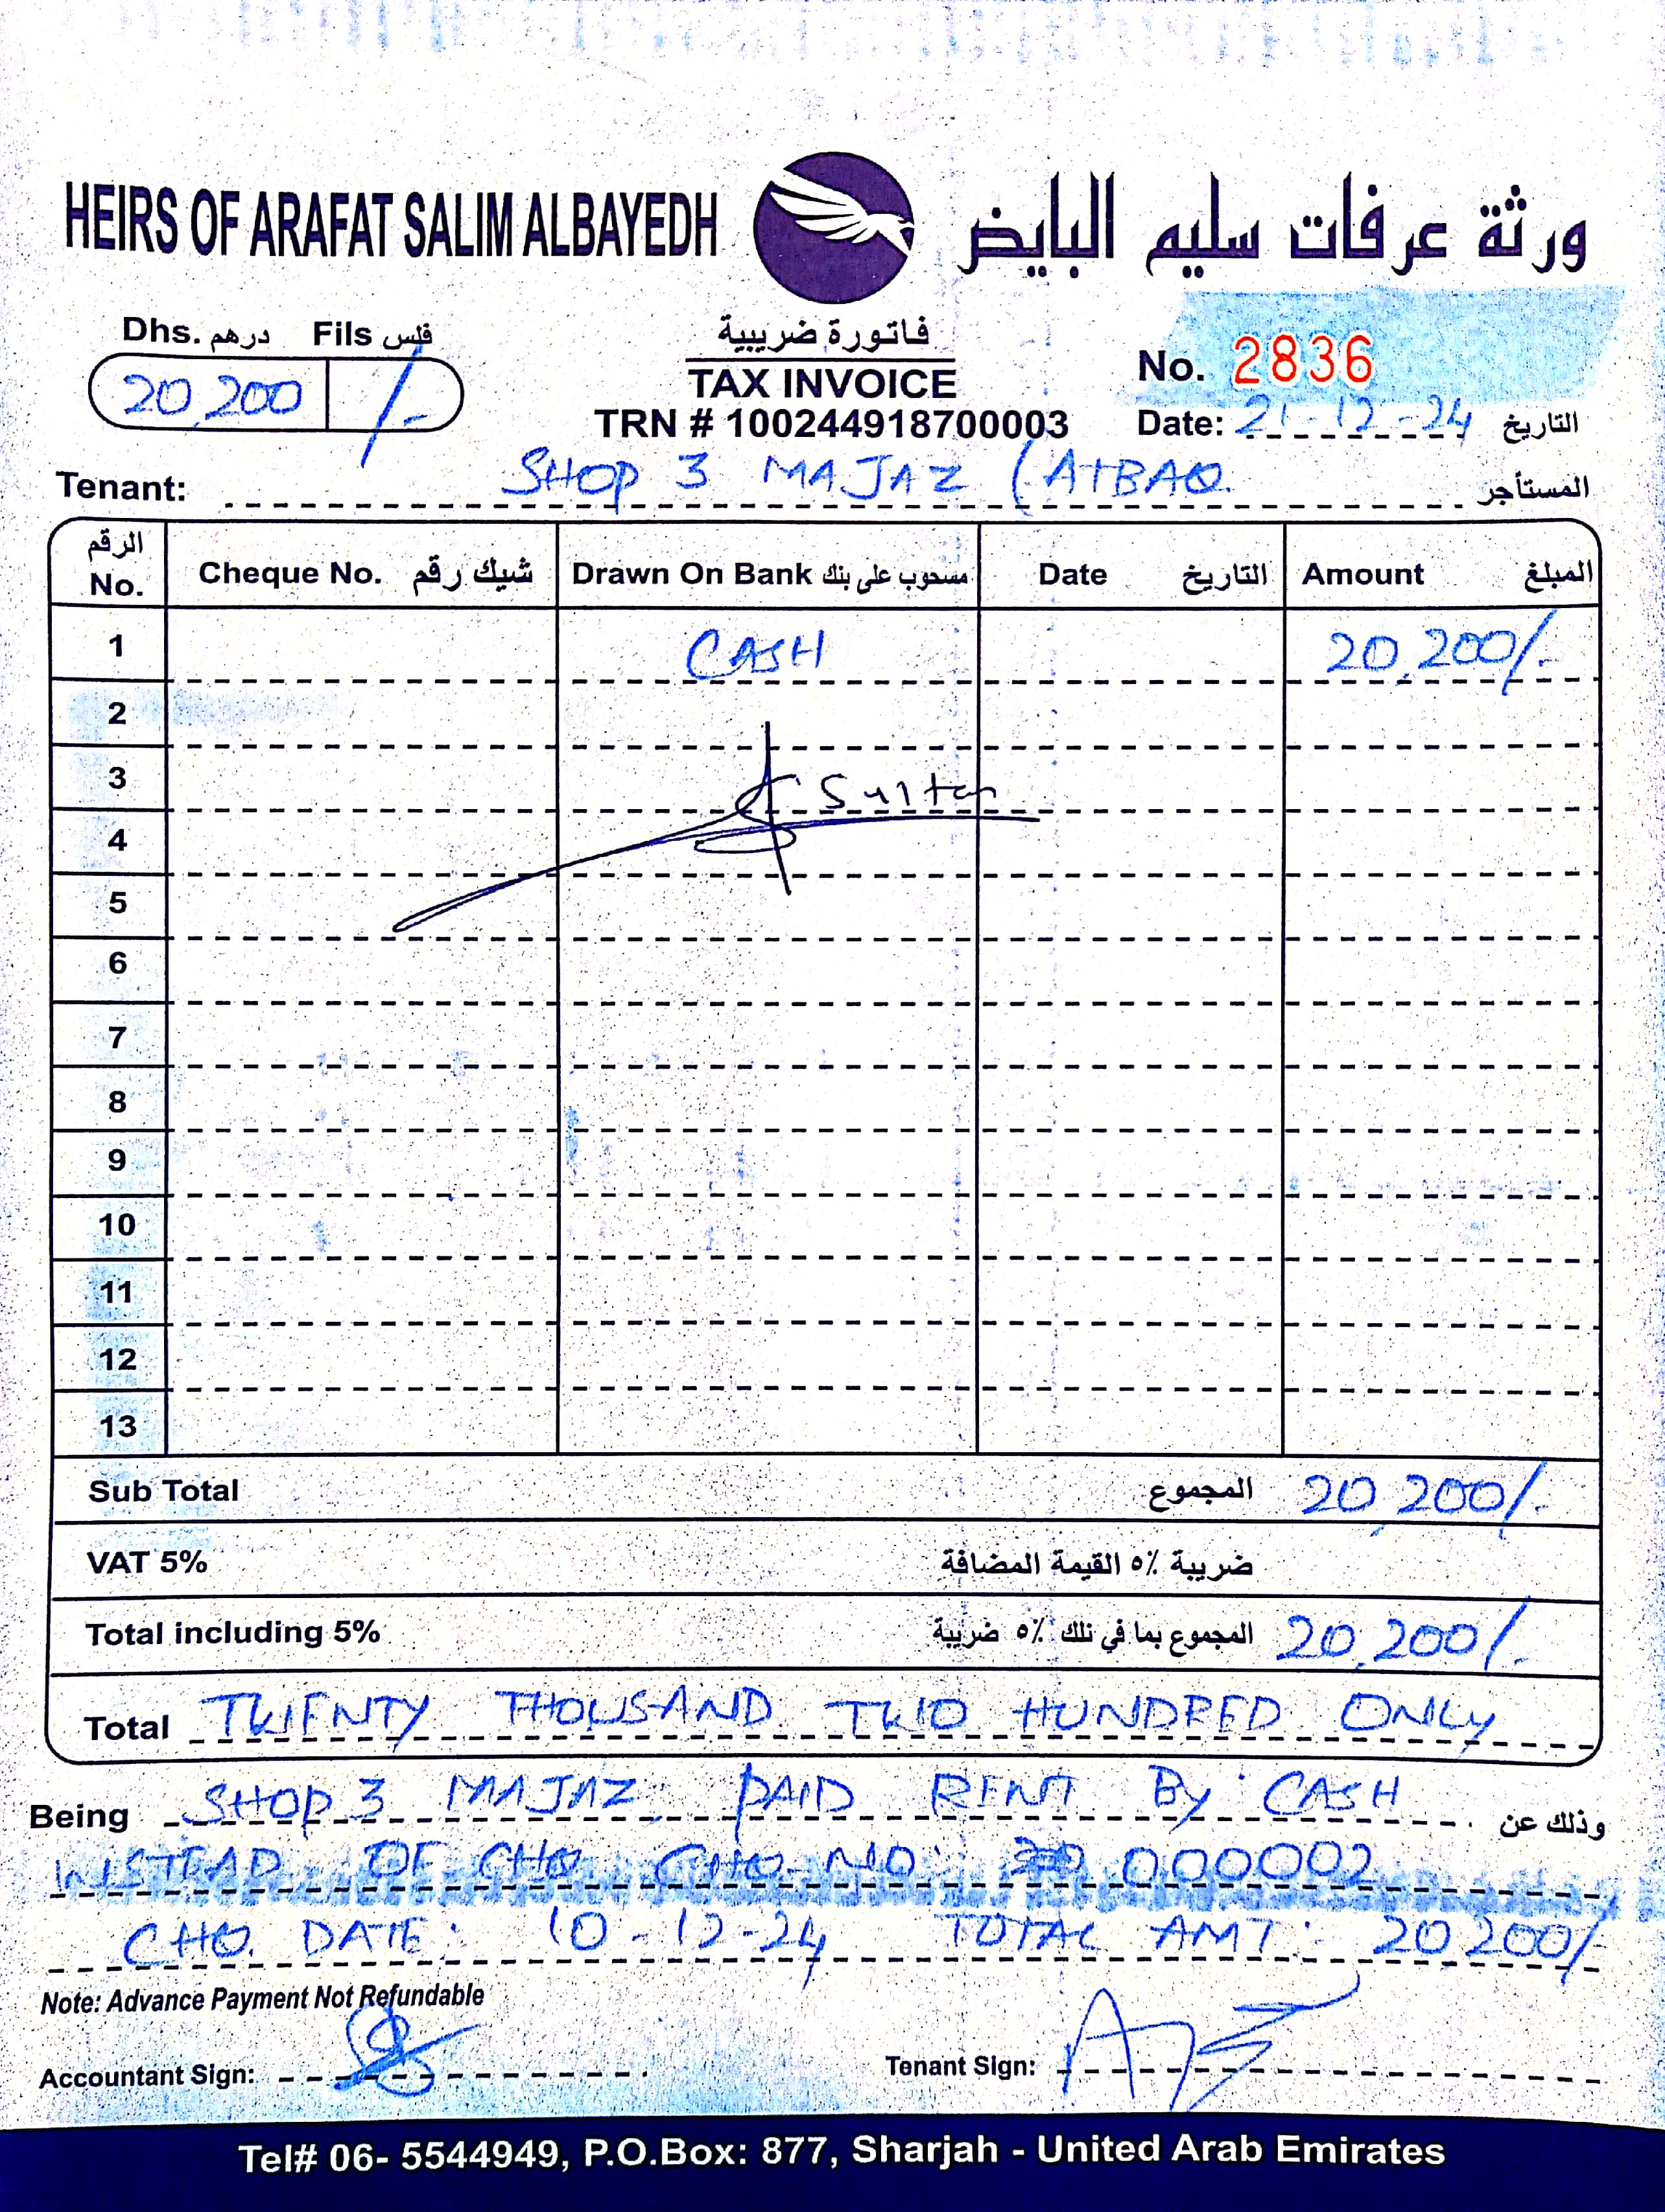 HEIRS OF ARAFAT SALIM ALBAYEDH ورثة عرفات سليم البايض
Dhs. درهم Fils فلس
20,200 /-
فاتورة ضريبية
TAX INVOICE
TRN # 100244918700003
No. 2836
Date: 21-12-24 التاريخ
Tenant: SHOP 3 MAJAZ (ATBAQ المستأجر
الرقم No. Cheque No. شيك رقم Drawn On Bank مسحوب على بنك Date التاريخ Amount المبلغ
1 CASH 20,200/-
2
3 Sultan
4
5
6
7
8
9
10
11
12
13
Sub Total المجموع 20,200/-
VAT 5% ضريبة ٥٪ القيمة المضافة
Total including 5% المجموع بما في ذلك ٥٪ ضريبة 20,200/-
Total TWENTY THOUSAND TWO HUNDRED ONLY
Being SHOP 3 MAJAZ PAID RENT BY CASH وذلك عن
INSTEAD OF CHQ CHQ NO: 000002
CHQ. DATE: 10-12-24 TOTAL AMT: 20,200/-
Note: Advance Payment Not Refundable
Accountant Sign: Tenant Sign:
Tel# 06- 5544949, P.O.Box: 877, Sharjah - United Arab Emirates